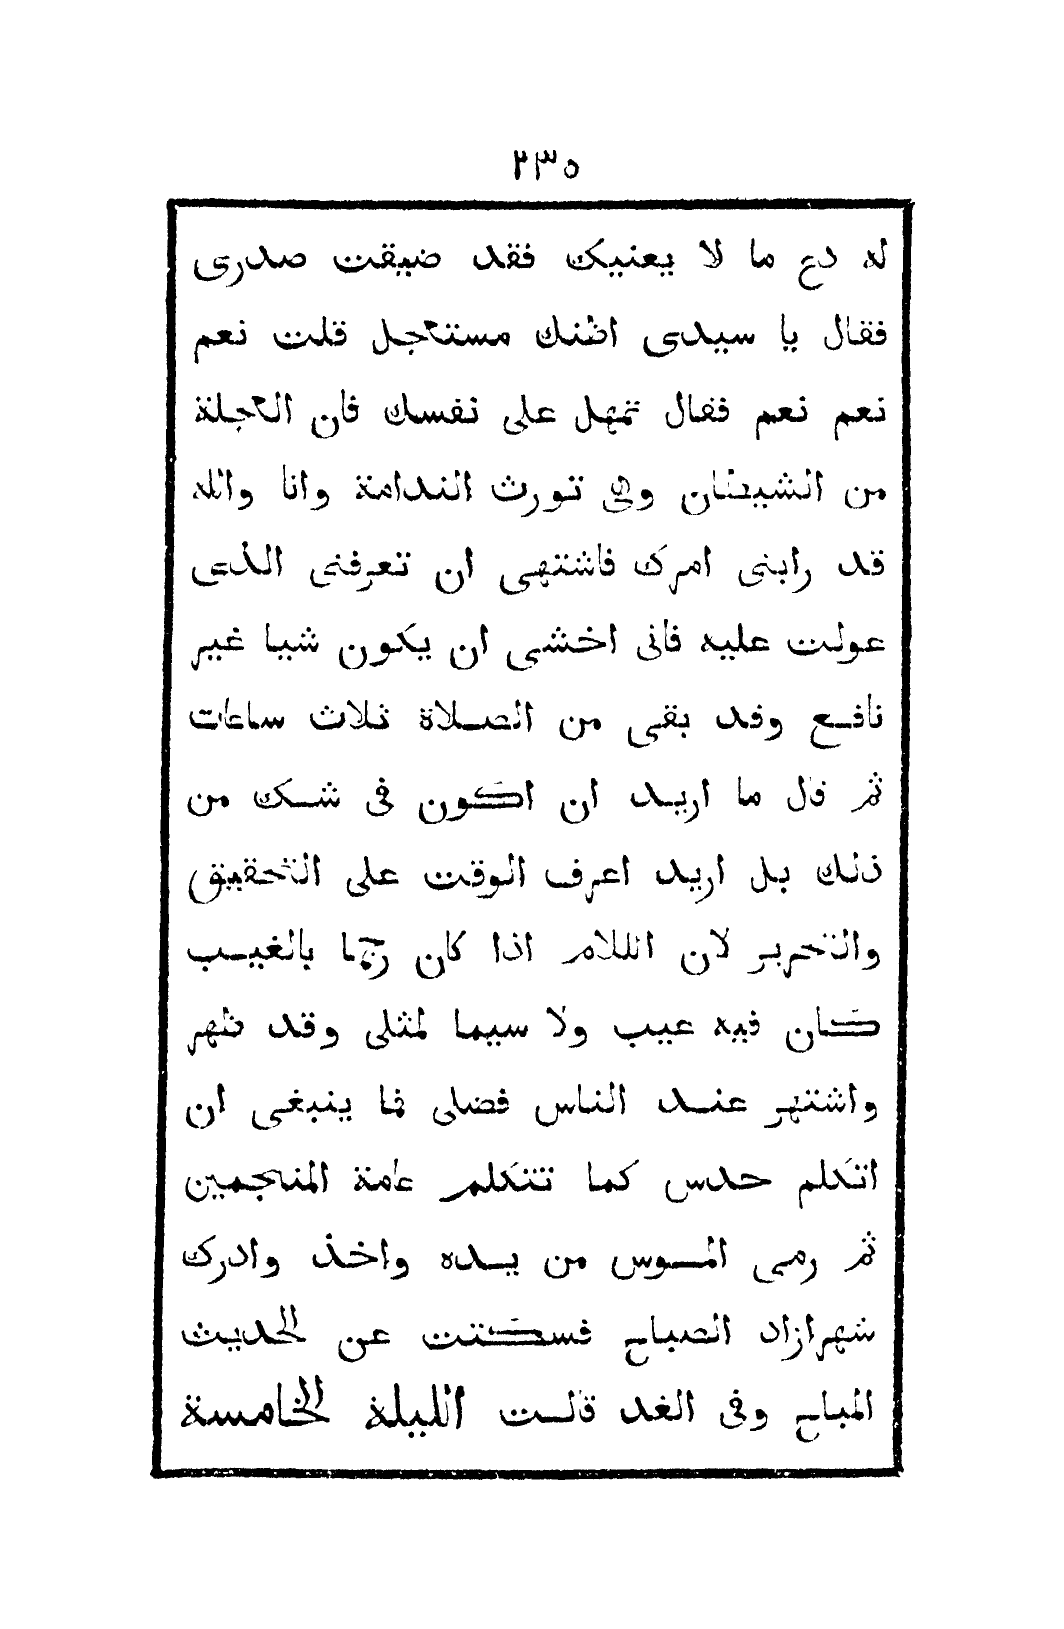 ٢٣٥
له دع ما لا يعنيك فقد ضيقت صدرى
فقال يا سيدى اظنك مستعجل قلت نعم
نعم نعم فقال تمهل على نفسك فان العجلة
من الشيطان وهى تورث الندامة وانا والله
قد رابنى امرك فاشتهى ان تعرفنى الذى
عولت عليه فانى اخشى ان يكون شيا غير
نافع وقد بقى من الصلاة ثلاث ساعات
ثم قال ما اريد ان اكون فى شك من
ذلك بل اريد اعرف الوقت على التحقيق
والتحرير لان الكلام اذا كان رجما بالغيب
كان فيه عيب ولا سيما لمثلى وقد ظهر
واشتهر عند الناس فضلى فما ينبغى ان
اتكلم حدس كما تتكلم عامة المنجمين
ثم رمى الموس من يده واخذ وادرك
شهرازاد الصباح فسكتت عن الحديث
المباح وفى الغد قالت الليلة الخامسة